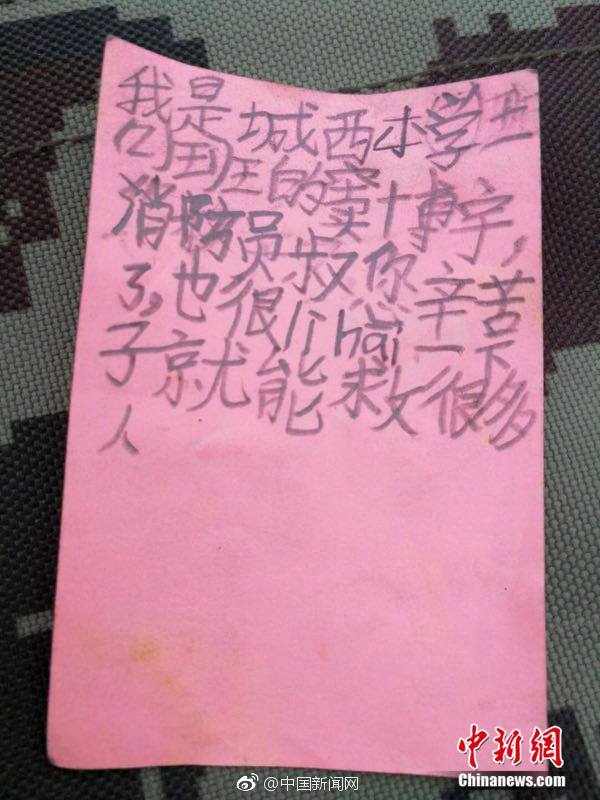 我是城西小学
的窦博宇，
消防员叔你辛苦
了，也很hai一下
子就能救很多
人
中新网
Chinanews.com
@中国新闻网